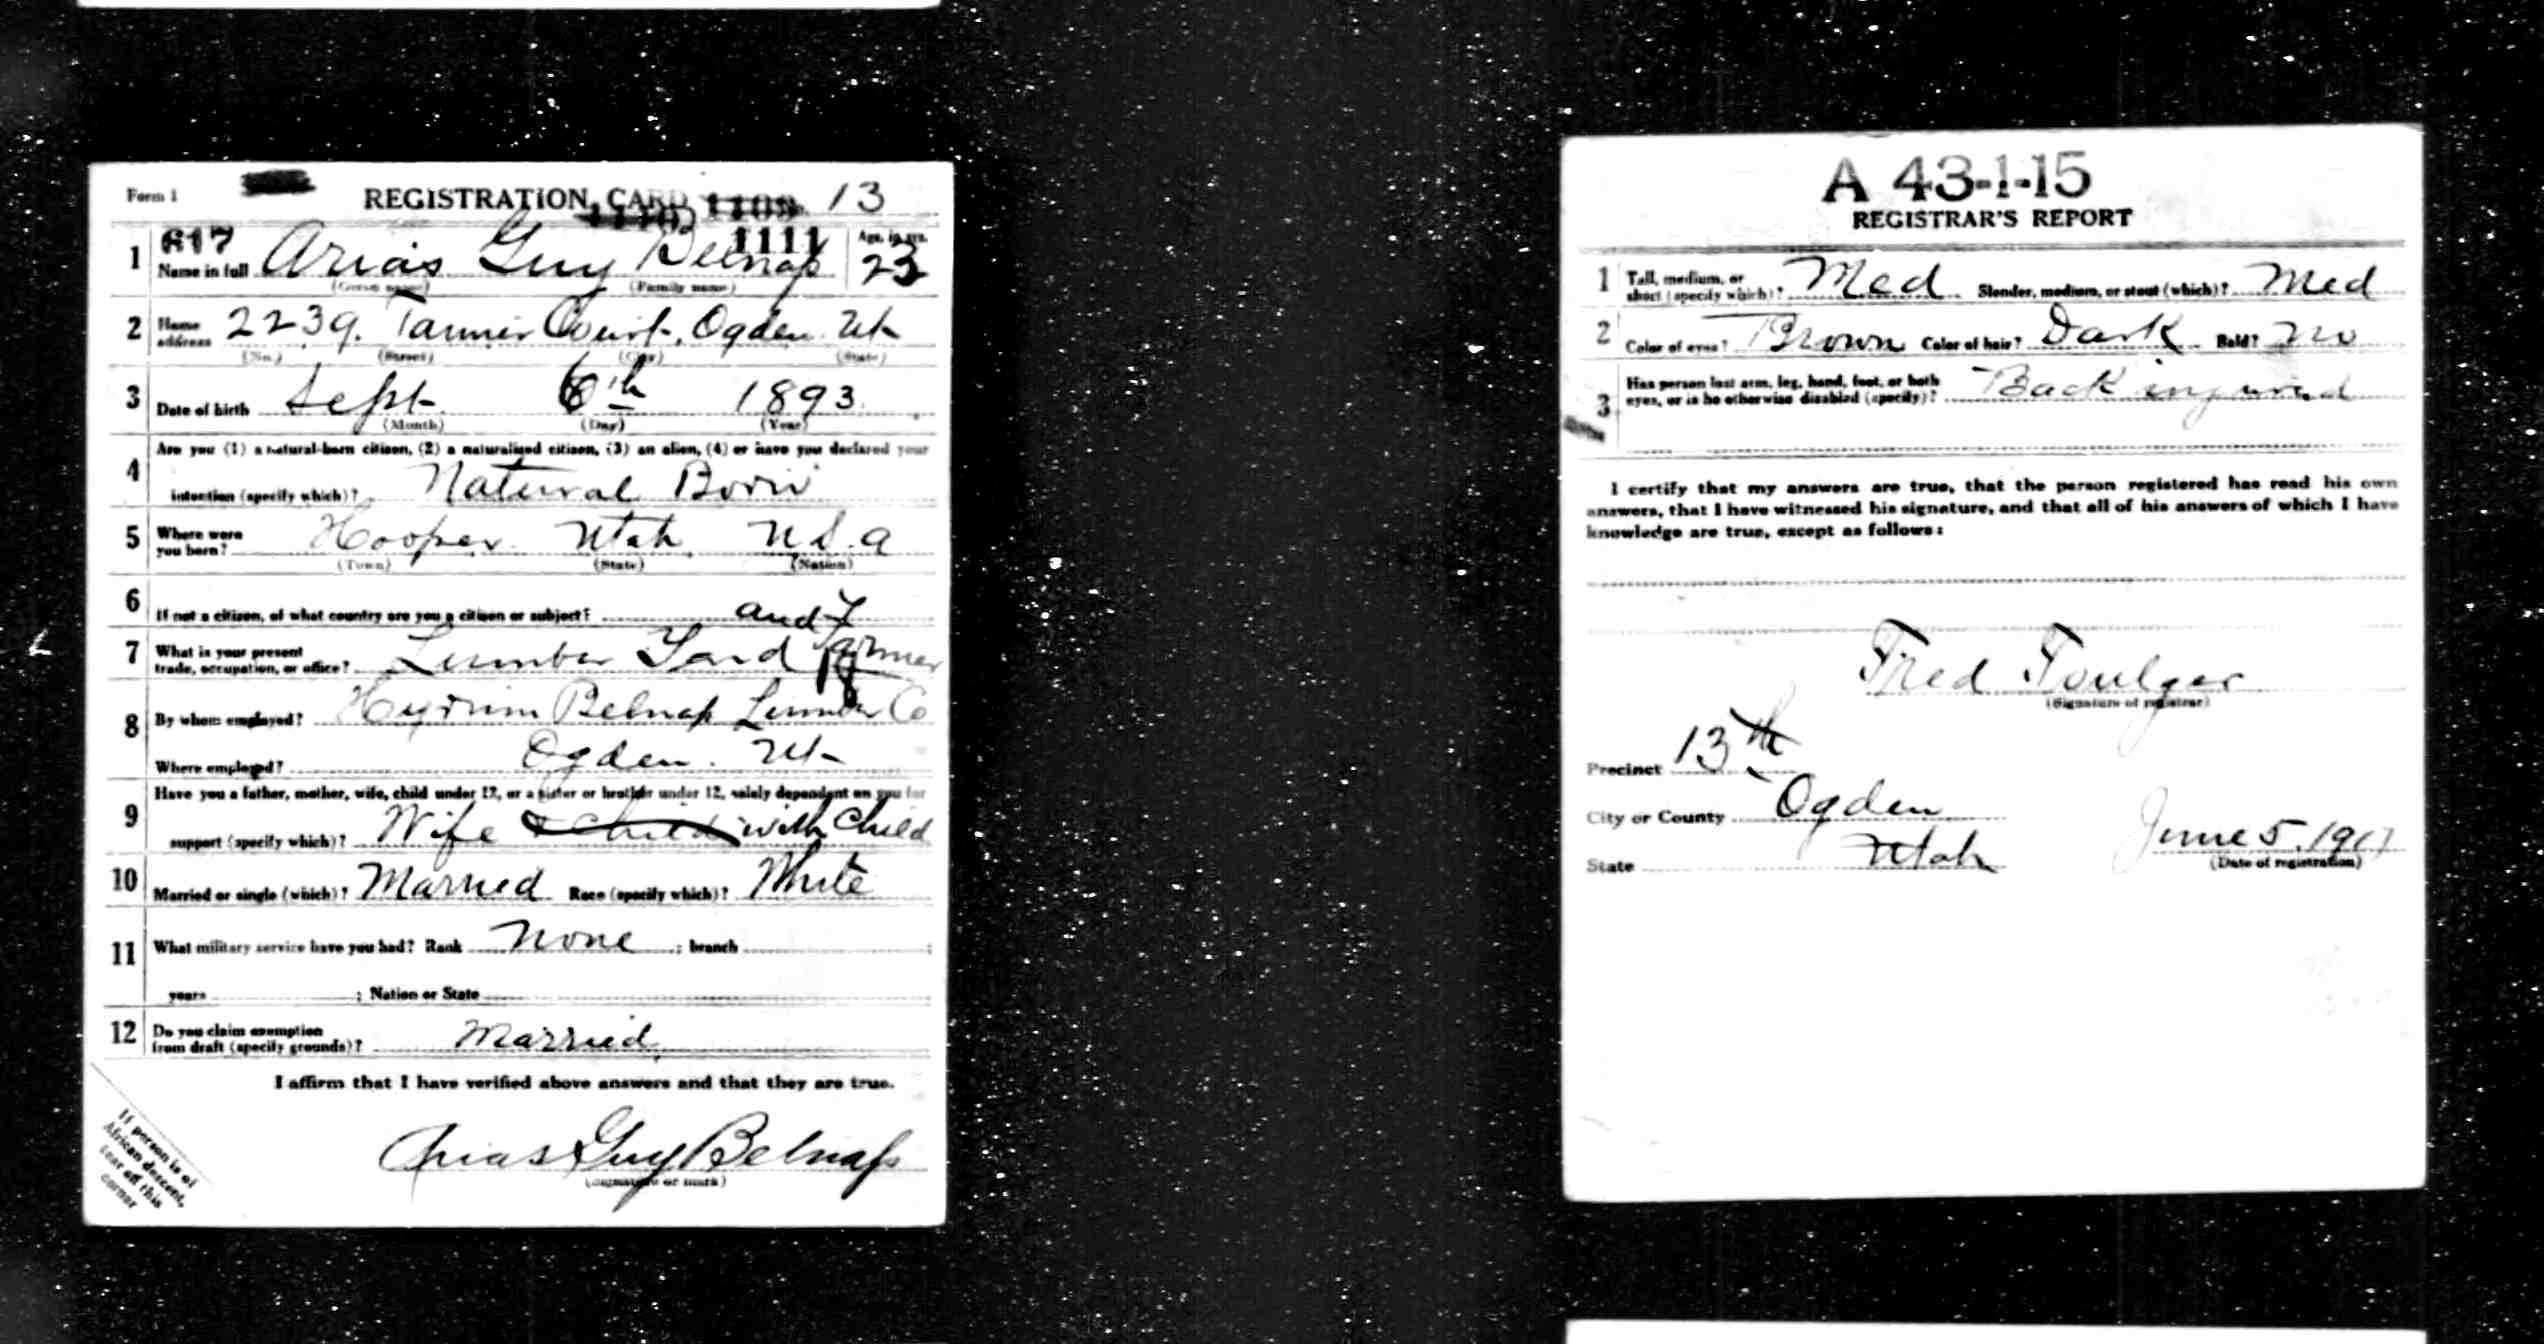 Form 1
REGISTRATION CARD 13
617 1111
1 Name in full Arias Guy Belnap Age, in yrs. 23
(Given name) (Family name)
2 Home address 2239. Tanner Court. Ogden Ut
(No.) (Street) (City) (State)
3 Date of birth Sept. 6th 1893
(Month) (Day) (Year)
Are you (1) a natural-born citizen, (2) a naturalized citizen, (3) an alien, (4) or have you declared your
4 intention (specify which)? Natural Born
5 Where were you born? Hooper Utah U.S.a
(Town) (State) (Nation)
6 If not a citizen, of what country are you a citizen or subject?
7 What is your present trade, occupation, or office? Lumber Yard and Farmer
8 By whom employed? Hyrum Belnap Lumber Co
Where employed? Ogden. Ut
9 Have you a father, mother, wife, child under 12, or a sister or brother under 12, solely dependent on you for
support (specify which)? Wife & Child with Child
10 Married or single (which)? Married Race (specify which)? White
11 What military service have you had? Rank None ; branch ;
years ; Nation or State
12 Do you claim exemption from draft (specify grounds)? Married
I affirm that I have verified above answers and that they are true.
Arias Guy Belnap
(Signature or mark)
If person is of
African descent,
tear off this
corner
A 43-1-15
REGISTRAR'S REPORT
1 Tall, medium, or short (specify which)? Med Slender, medium, or stout (which)? Med
2 Color of eyes? Brown Color of hair? Dark Bald? No
3 Has person lost arm, leg, hand, foot, or both eyes, or is he otherwise disabled (specify)? Back injured
I certify that my answers are true, that the person registered has read his own
answers, that I have witnessed his signature, and that all of his answers of which I have
knowledge are true, except as follows:
Fred Foulger
(Signature of registrar)
Precinct 13th
City or County Ogden
State Utah
June 5, 1917
(Date of registration)